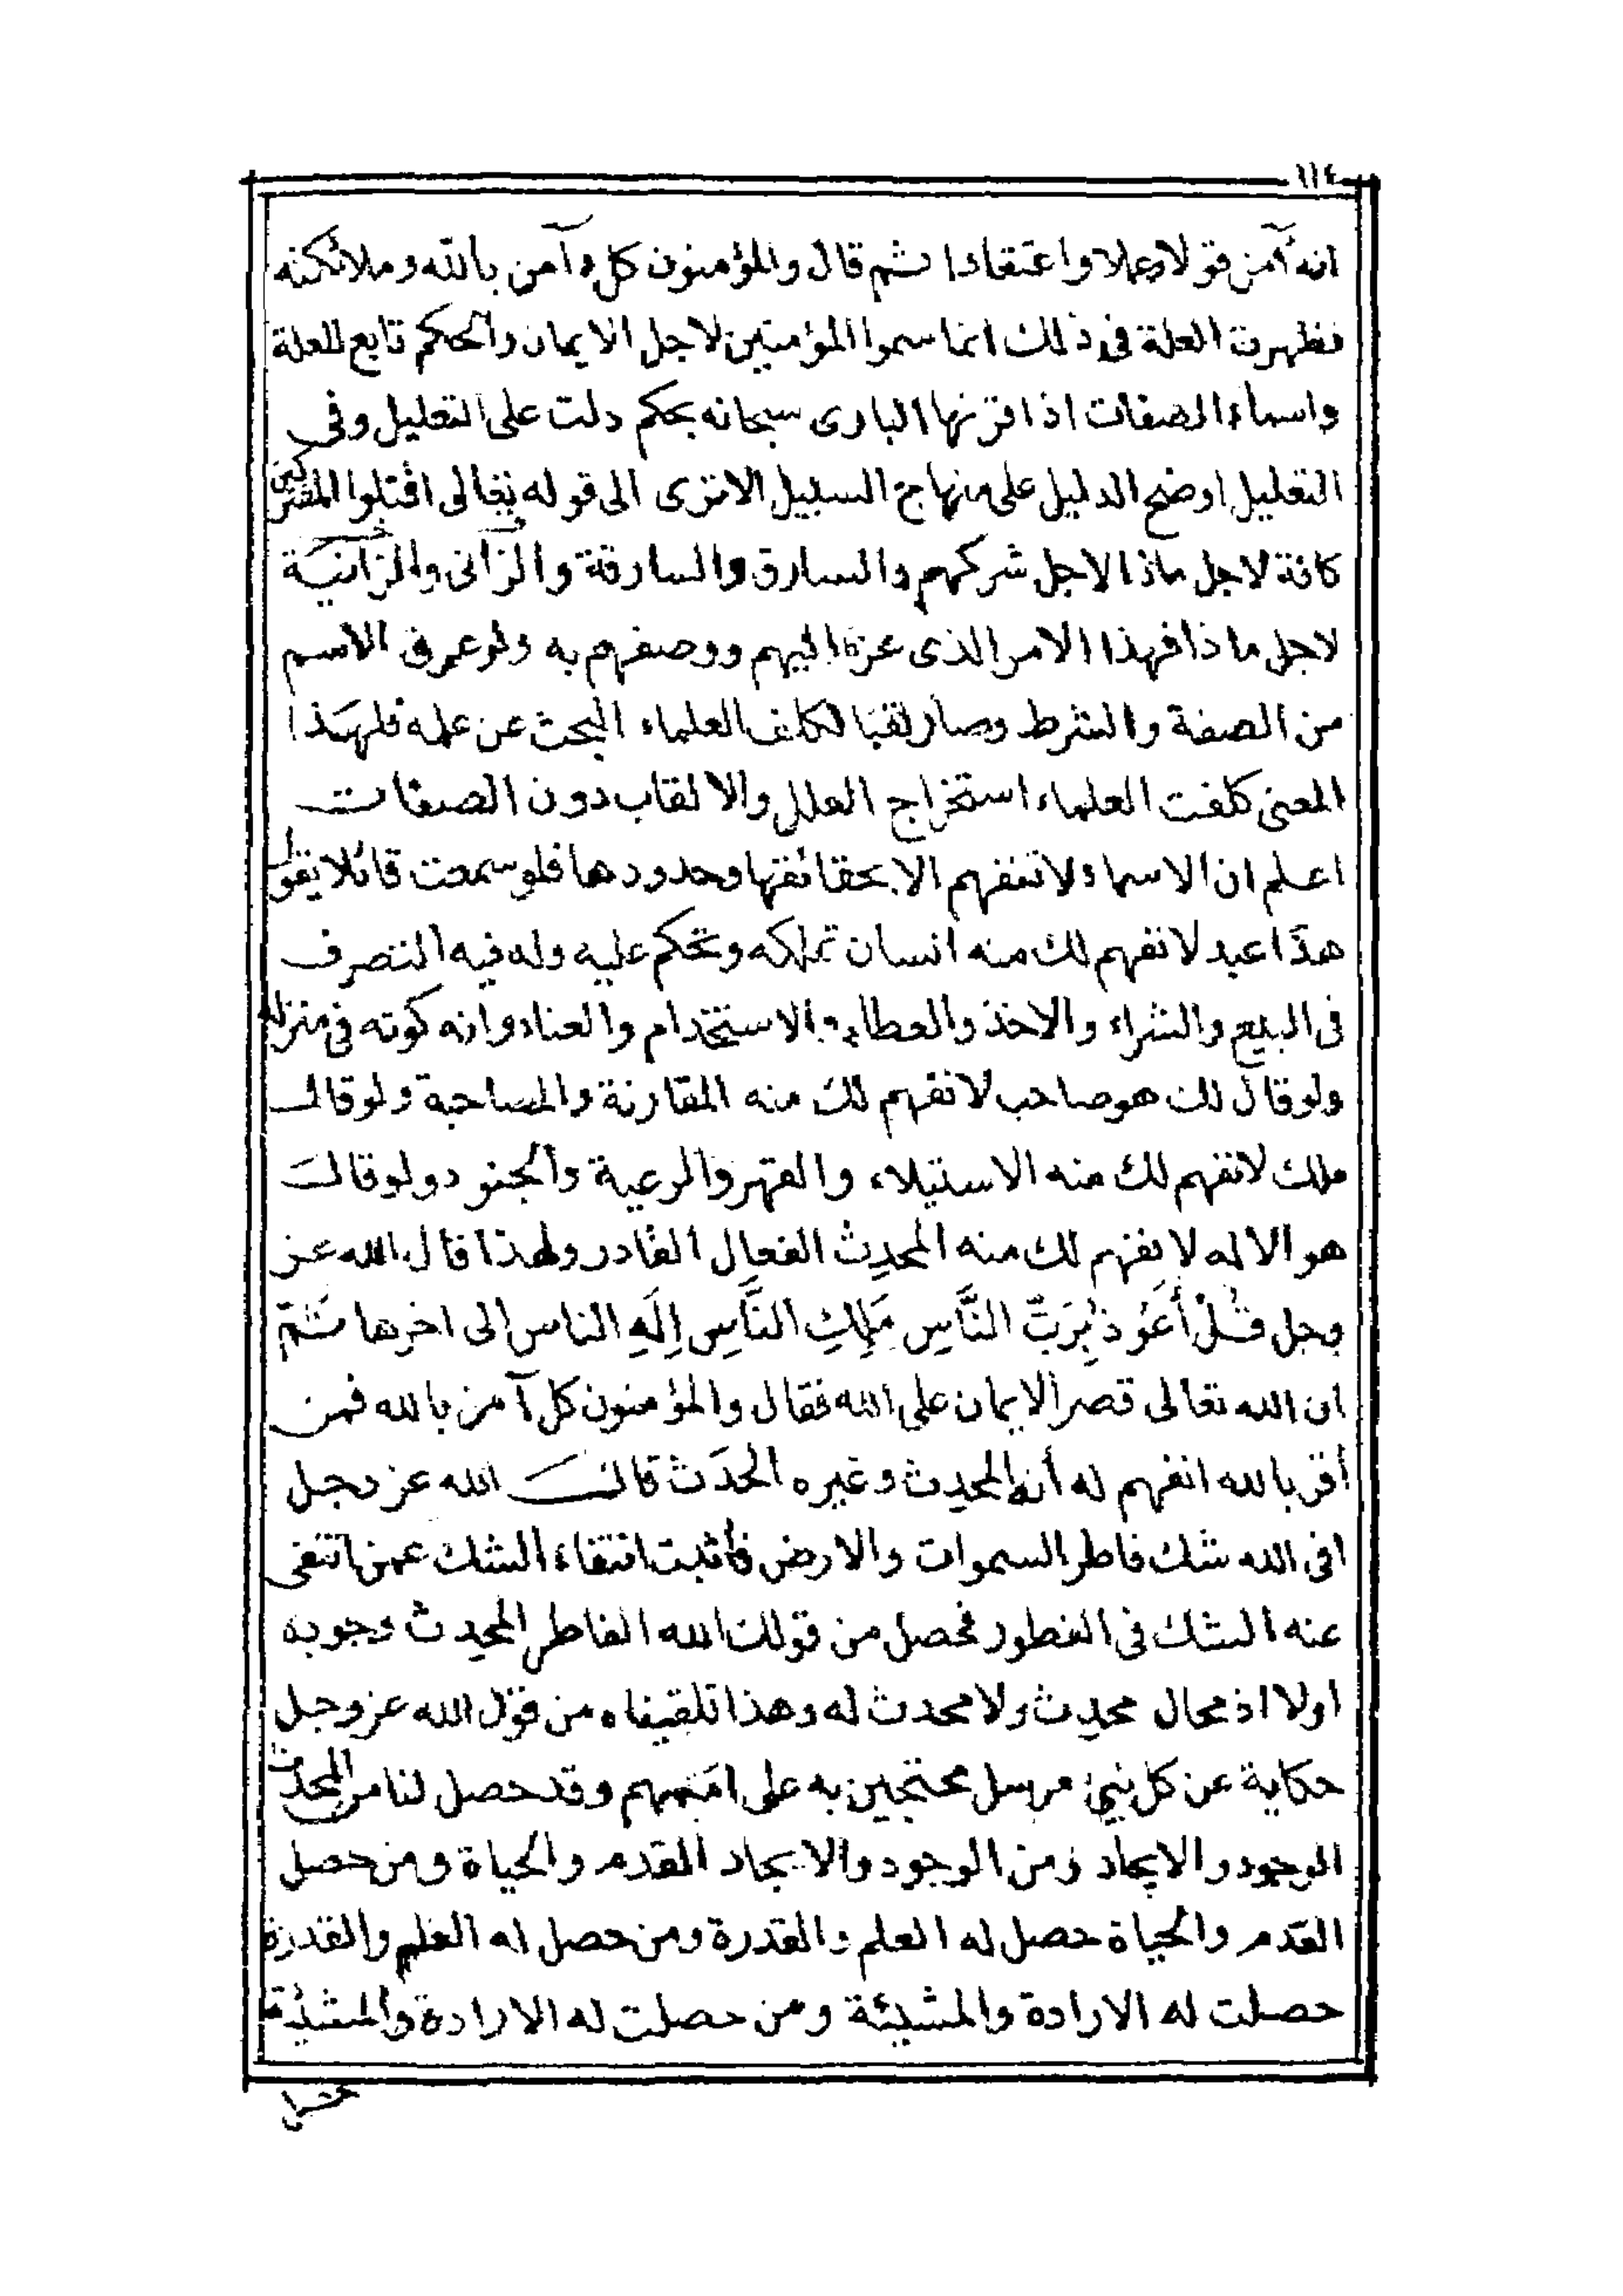 ١١٤
انه آمن قولا وعملا واعتقادا ثم قال والمؤمنون كل آمن بالله وملائكته
فظهرت العلة فى ذلك انما سموا المؤمنين لاجل الايمان والحكم تابع للعلة
واسماء الصفات اذا قرنها البارى سبحانه بحكم دلت على التعليل وفى
التعليل اوضح الدليل على منهاج السبيل الا ترى الى قوله تعالى اقتلوا المشركين
كافة لاجل ماذا لاجل شركهم والسارق والسارقة والزانى والزانية
لاجل ماذا فهذا الامر الذى عزاه اليهم ووصفهم به ولو عرى الاسم
من الصفة والشرط وصار لقبا لكلف العلماء البحث عن علله فلهذا
المعنى كلفت العلماء استخراج العلل والالقاب دون الصفات
اعلم ان الاسماء لا تنفهم الا بحقائقها وحدودها فلو سمعت قائلا يقول
هذا عبد لانفهم لك منه انسان تملكه وتحكم عليه وله فيه التصرف
فى البيع والشراء والاخذ والعطاء والاستخدام والعناء وانه كونه فى منزله
ولو قال لك هو صاحب لانفهم لك منه المقارنة والمصاحبة ولو قال
ملك لانفهم لك منه الاستيلاء والقهر والرعية والجنود ولو قال
هو الاله لانفهم لك منه المحدِث الفعال القادر ولهذا قال الله عز
وجل قُلْ أَعُوذُ بِرَبِّ النَّاسِ مَلِكِ النَّاسِ إِلَهِ الناس الى اخرها ثمّ
ان الله تعالى قصر الايمان على الله فقال والمؤمنون كل آمن بالله فمن
أقر بالله انفهم له أنه المحدِث وغيره المحدَث قال الله عز وجل
افى الله شك فاطر السموات والارض فأثبت انتفاء الشك عمن انتفى
عنه الشك فى الفطور فحصل من قولك الله الفاطر المحدِث وجوبه
اولا اذ محال محدِث ولا محدث له وهذا تلقيناه من قول الله عز وجل
حكاية عن كل نبئ مرسل محتجين به على اممهم وقد حصل لنا من المحدث
الوجود والايجاد ومن الوجود والايجاد القدم والحياة ومن حصل
القدم والحياة حصل له العلم والقدرة ومن حصل له العلم والقدرة
حصلت له الارادة والمشيئة ومن حصلت له الارادة والمشيئة